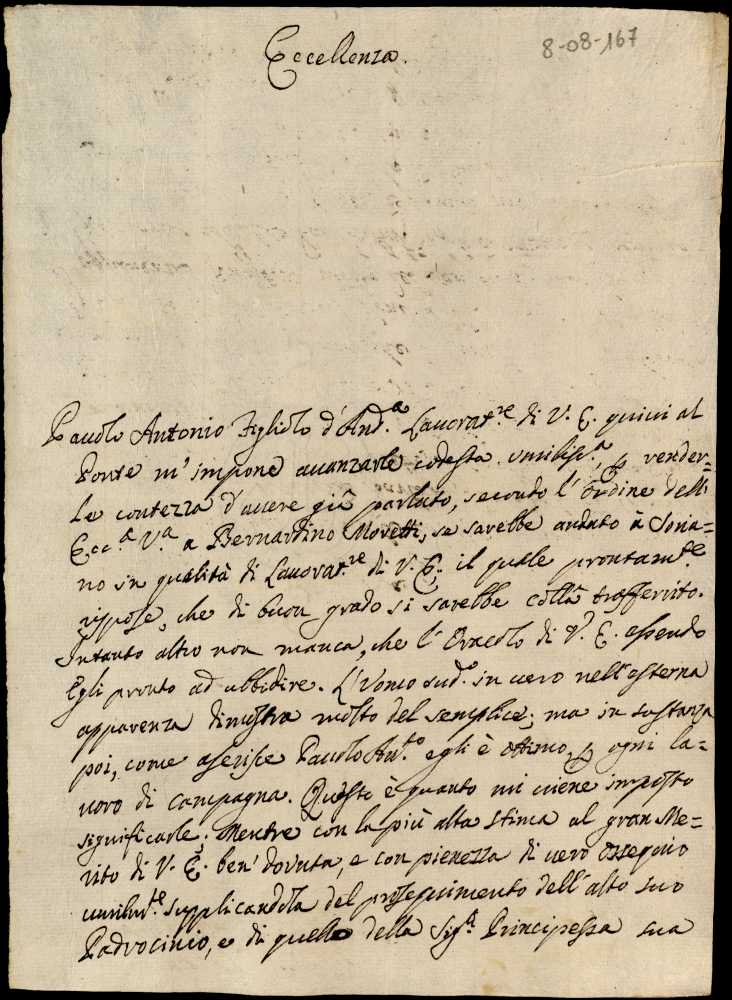 8-08-167
Eccellenza.
Pauolo Antonio Figliolo d'And.a Lauorat.re di V. E. quiui al
Ponte m'impone auanzarle codesta umiliss.a, p render=
Le contezza d'auere già parlato, secondo l'ordine dell'
Ecc.a V.a a Bernardino Moretti, se sarebbe andato à Soria=
no in qualità di Lauorat.re di V. E., il quale prontam.te
rispose, che di buon grado si sarebbe collà trasferrito.
Intanto altro non manca, che l'Oracolo di V. E. essendo
Egli pronto ad ubbidire. L'Uomo sud.o in uero nell'esterna
apparenza dimostra molto del semplice; ma in sostanza
poi, come asserisce Pauolo An.to egli è ottimo, p ogni la=
uoro di campagna. Questo è quanto mi uiene imposto
significarle; Mentre con la più alta stima al gran Me=
rito di V. E. ben' dovuta, e con pienezza di uero ossequio
umilm.te supplicandola del proseguimento dell'alto suo
Padrocinio, e di quello della Sig.a Principessa sua